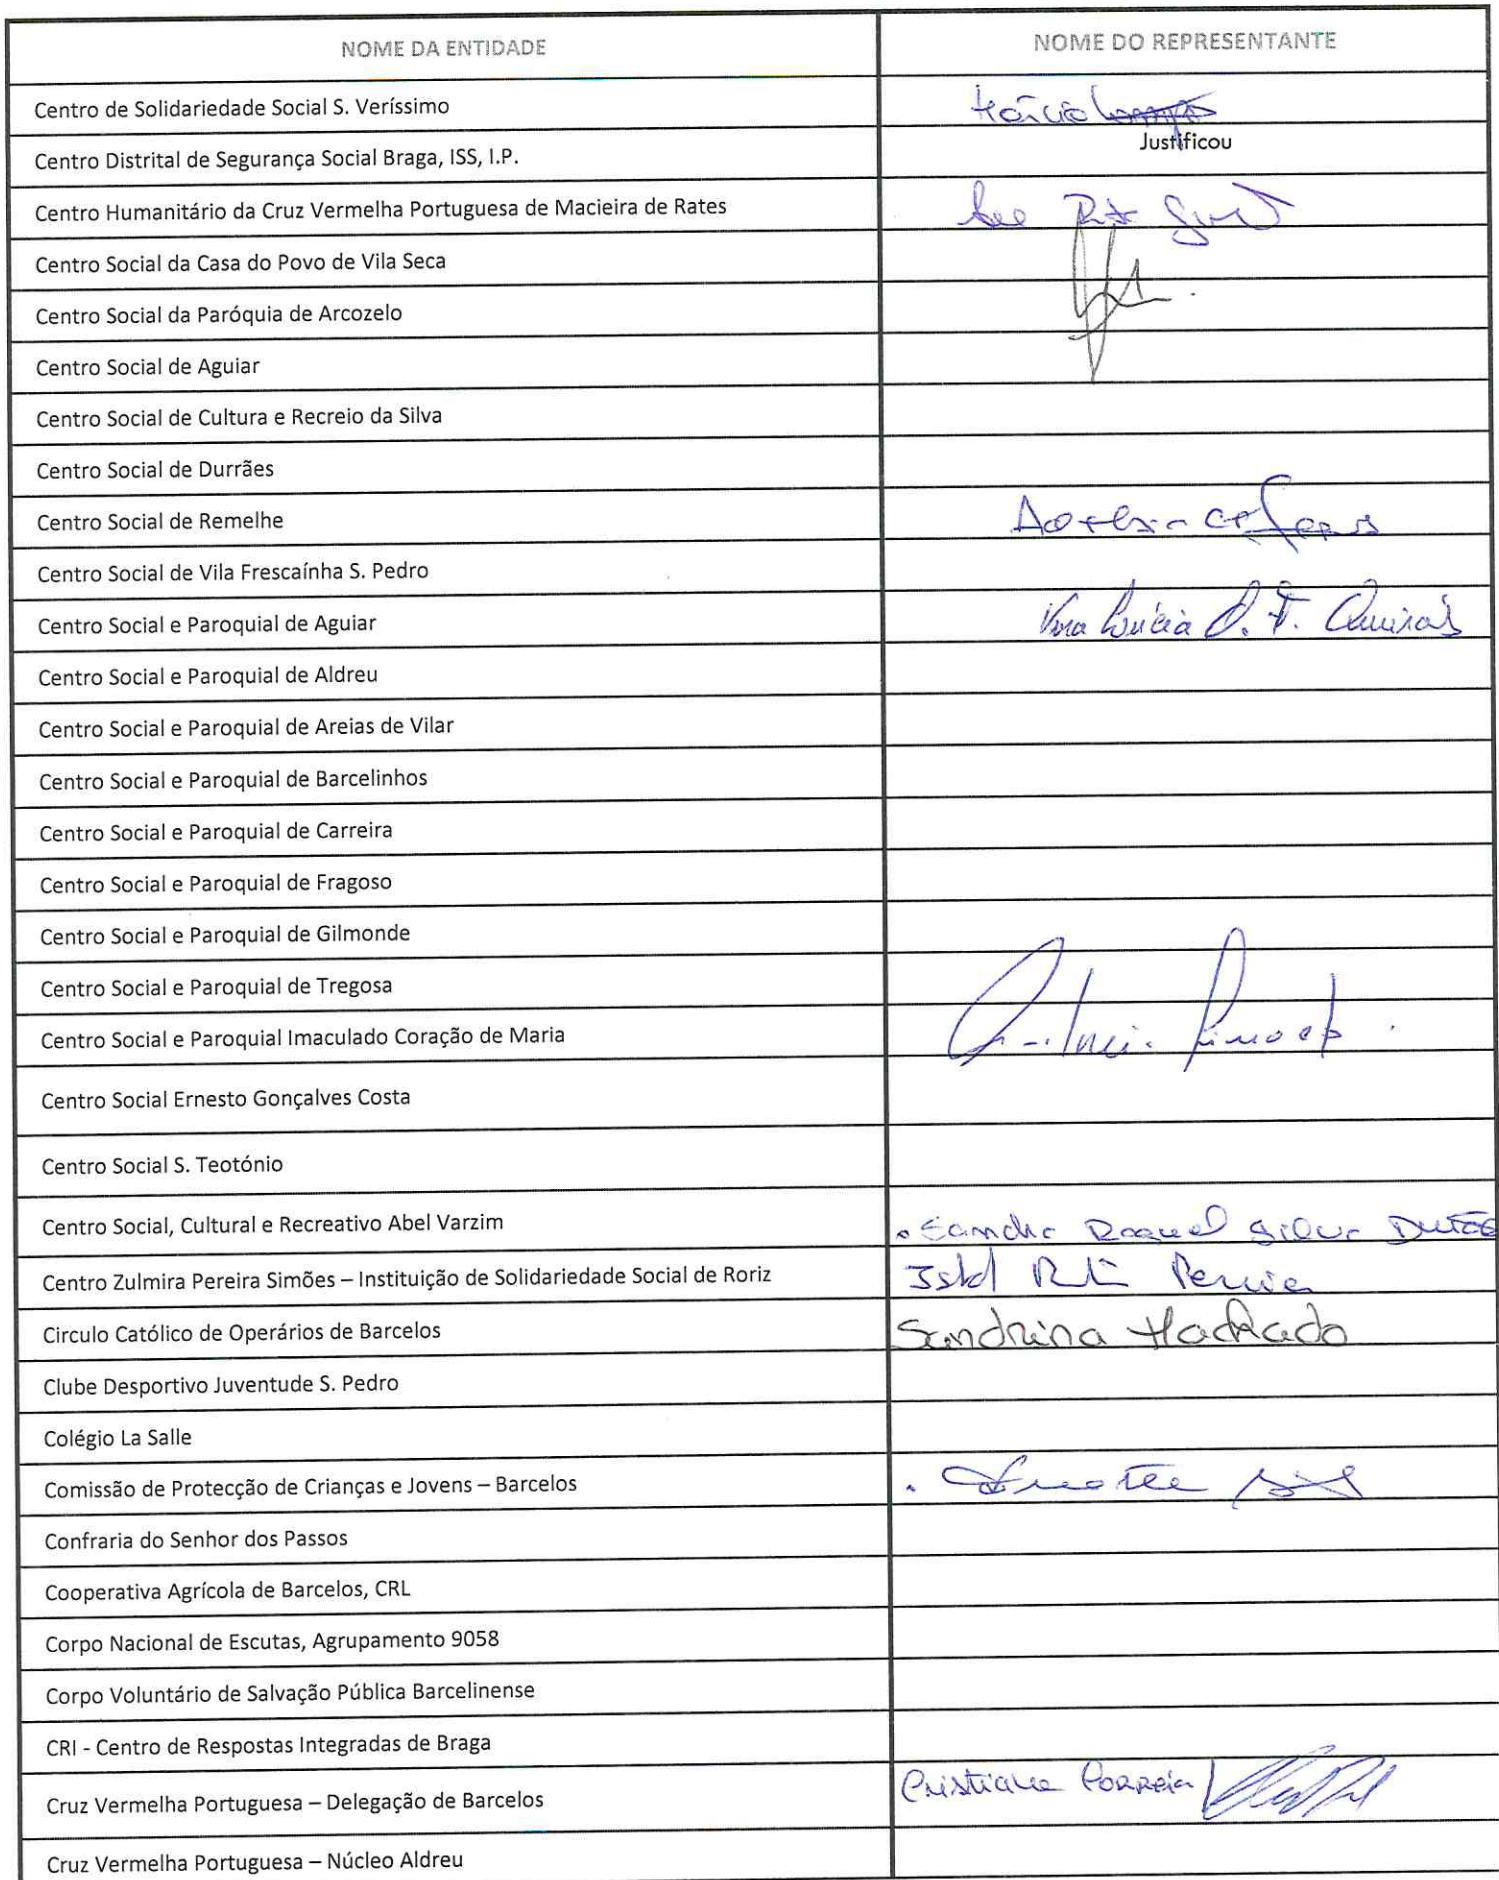 NOME DA ENTIDADE NOME DO REPRESENTANTE
Centro de Solidariedade Social S. Veríssimo
Centro Distrital de Segurança Social Braga, ISS, I.P. Justificou
Centro Humanitário da Cruz Vermelha Portuguesa de Macieira de Rates
Centro Social da Casa do Povo de Vila Seca
Centro Social da Paróquia de Arcozelo
Centro Social de Aguiar
Centro Social de Cultura e Recreio da Silva
Centro Social de Durrães
Centro Social de Remelhe
Centro Social de Vila Frescaínha S. Pedro
Centro Social e Paroquial de Aguiar
Centro Social e Paroquial de Aldreu
Centro Social e Paroquial de Areias de Vilar
Centro Social e Paroquial de Barcelinhos
Centro Social e Paroquial de Carreira
Centro Social e Paroquial de Fragoso
Centro Social e Paroquial de Gilmonde
Centro Social e Paroquial de Tregosa
Centro Social e Paroquial Imaculado Coração de Maria
Centro Social Ernesto Gonçalves Costa
Centro Social S. Teotónio
Centro Social, Cultural e Recreativo Abel Varzim Sandra Raquel Silva
Centro Zulmira Pereira Simões – Instituição de Solidariedade Social de Roriz Pereira
Circulo Católico de Operários de Barcelos Sandrina Machado
Clube Desportivo Juventude S. Pedro
Colégio La Salle
Comissão de Protecção de Crianças e Jovens – Barcelos
Confraria do Senhor dos Passos
Cooperativa Agrícola de Barcelos, CRL
Corpo Nacional de Escutas, Agrupamento 9058
Corpo Voluntário de Salvação Pública Barcelinense
CRI - Centro de Respostas Integradas de Braga
Cruz Vermelha Portuguesa – Delegação de Barcelos
Cruz Vermelha Portuguesa – Núcleo Aldreu